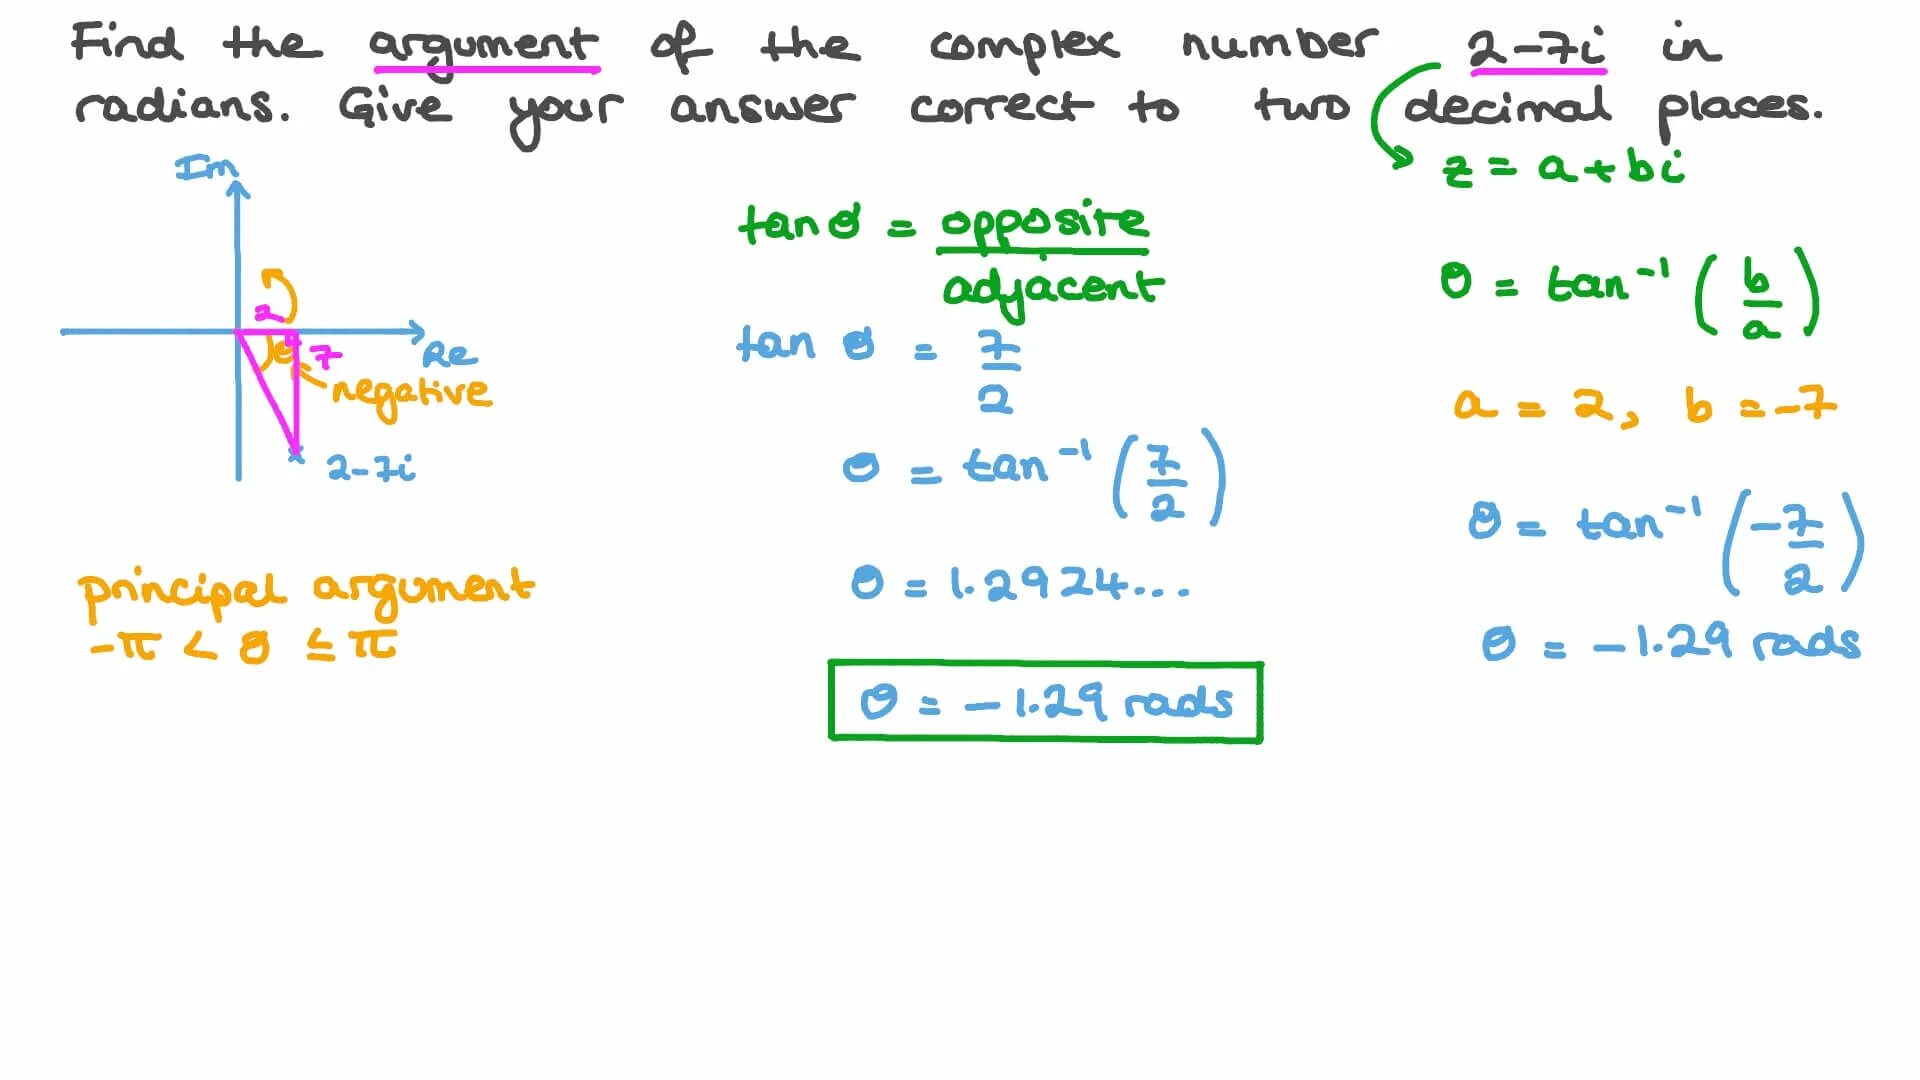 Find the argument of the complex number 2-7i in
radians. Give your answer correct to two decimal places.
Im
2
θ
7
Re
negative
2-7i
principal argument
-π < θ ≤ π
tan θ = opposite
adjacent
tan θ = 7/2
θ = tan⁻¹ (7/2)
θ = 1.2924...
θ = -1.29 rads
z = a+bi
θ = tan⁻¹ (b/a)
a = 2, b = -7
θ = tan⁻¹ (-7/2)
θ = -1.29 rads